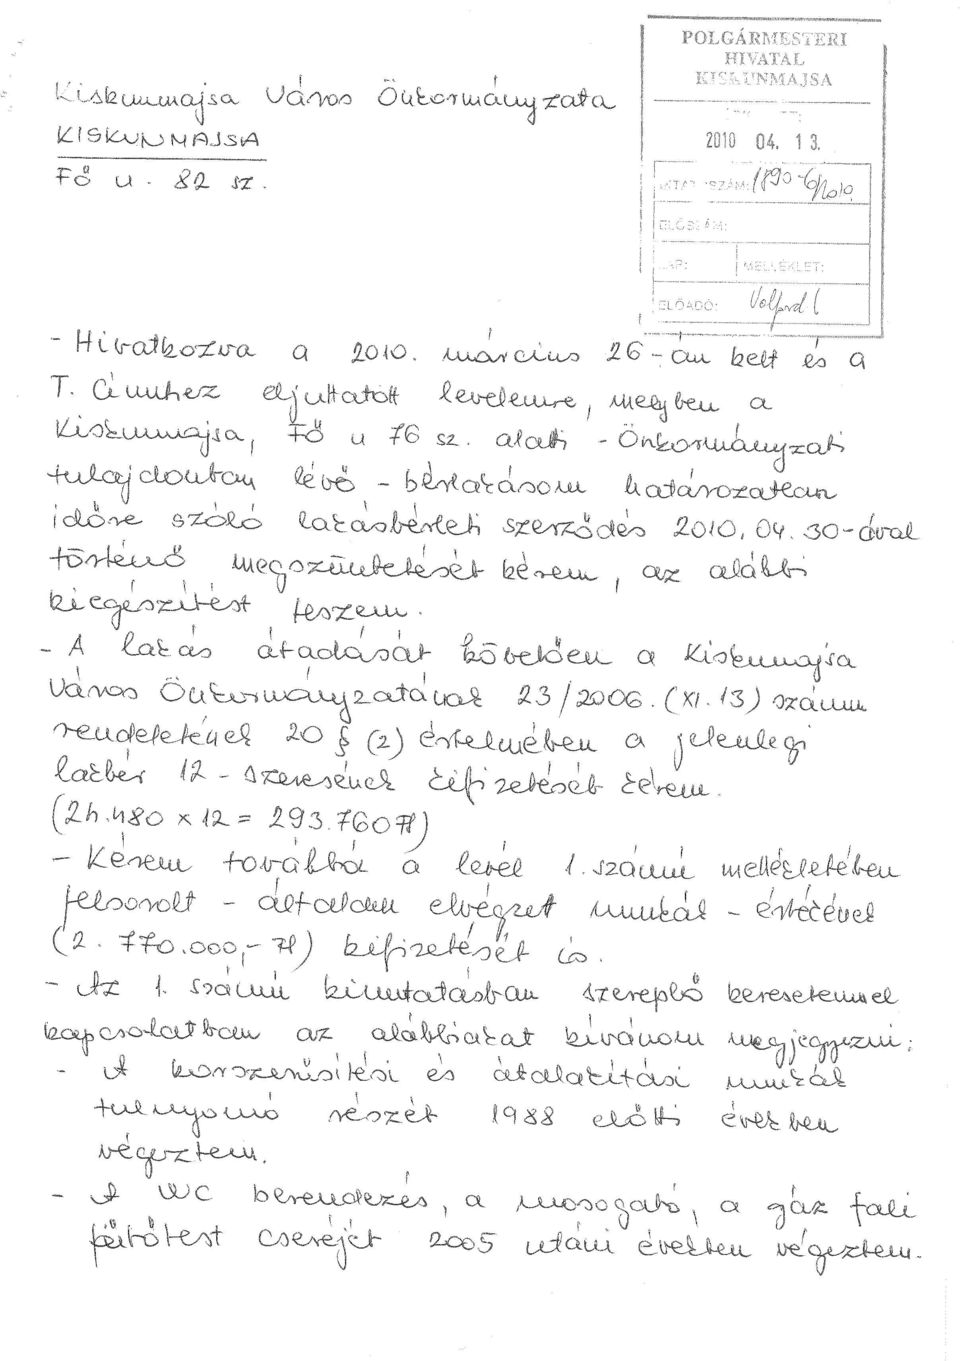 POLGÁRMESTERI
HIVATAL
KISKUNMAJSA
2010 04. 13.
IKTATÓSZÁM: 1890-6/2010
ELŐSZÁM:
LAP: MELLÉKLET:
ELŐADÓ:
Kiskunmajsa Város Önkormányzata
KISKUNMAJSA
Fő u. 82 sz.
- Hivatkozva a 2010. március 26-án kelt és a
T. Címhez eljuttatott levelemre, melyben a
Kiskunmajsa, Fő u 76 sz. alatti - Önkormányzati
tulajdonban lévő - bérlakásom határozatlan
időre szóló lakásbérleti szerződés 2010. 04. 30-ával
történő megszüntetését kérem, az alábbi
kiegészítést teszem.
- A lakás átadását követően a Kiskunmajsa
Város Önkormányzatának 23/2006. (XI. 13) számu
rendeletének 20 § (2) értelmében a jelenlegi
lakbér 12 - szeresének kifizetését kérem.
(24.480 x 12 = 293.760 Ft)
- Kérem továbbá a levél 1. számú mellékletében
felsorolt - általam elvégzet munkák - értékének
(2. 770.000,- Ft) kifizetését is.
- Az 1. számú kimutatásban szereplő keresetemmel
kapcsolatban az alábbiakat kívánom megjegyezni:
- A korszerűsítési és átalakítási munkák
tulnyomó részét 1988 előtti években
végeztem.
- A WC berendezés, a mosogató, a gáz fali
fűtőtest cseréjét 2005 utáni években végeztem.